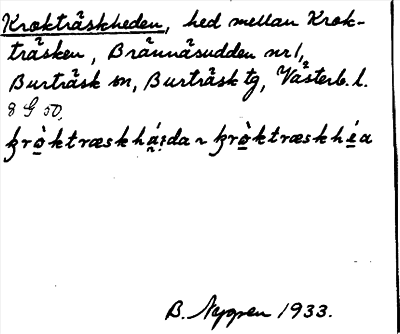 Krokträskheden, hed mellan Krok-
träsken, Brännäsudden nr 1,
Burträsk sn, Burträsk tg, Västerb. l.
8 G 50,
kròktræskhá:da ~ kròktræskhéa
B. Nygren 1933.